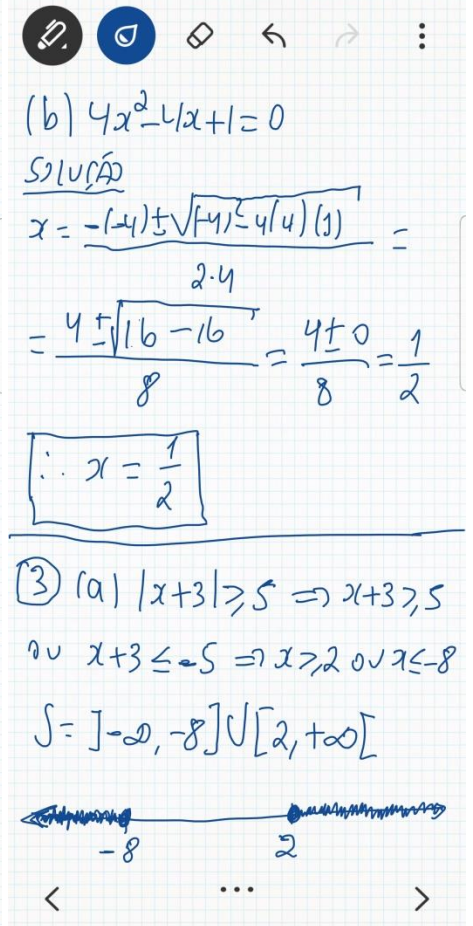 (b) 4x²-4x+1=0
SOLUÇÃO
x = -(-4)±√(-4)²-4(4)(1) =
2·4
= 4±√16-16 = 4±0 = 1
8 8 2
∴ x = 1
2
③ (a) |x+3|≥5 ⇒ x+3≥5
ou x+3≤-5 ⇒ x≥2 ou x≤-8
S= ]-∞,-8]∪[2,+∞[
-8 2